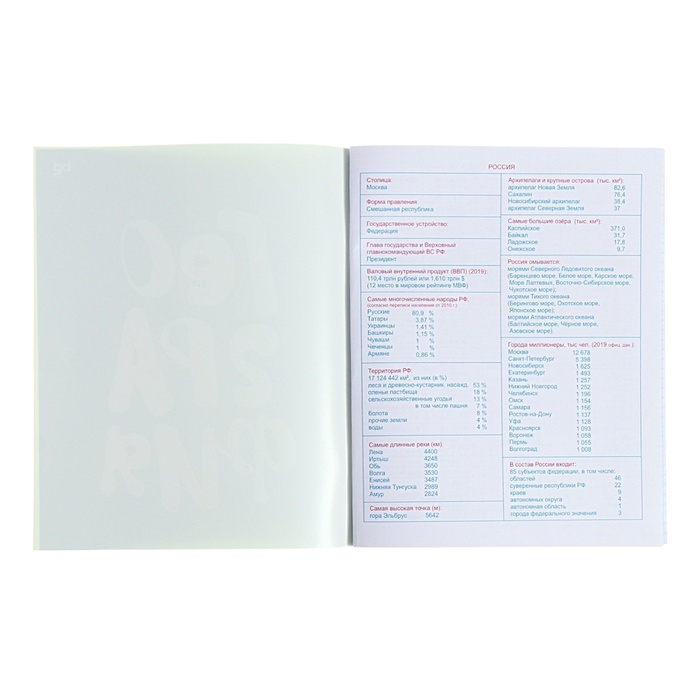 РОССИЯ
Столица:
Москва
Форма правления:
Смешанная республика
Государственное устройство:
Федерация
Глава государства и Верховный
главнокомандующий ВС РФ:
Президент
Валовый внутренний продукт (ВВП) (2019):
110,4 трлн рублей или 1,610 трлн $
(12 место в мировом рейтинге МВФ)
Самые многочисленные народы РФ,
(согласно переписи населения от 2010 г.):
Русские 80,9 %
Татары 3,87 %
Украинцы 1,41 %
Башкиры 1,15 %
Чуваши 1 %
Чеченцы 1 %
Армяне 0,86 %
Территория РФ:
17 124 442 км², из них (в %)
леса и древесно-кустарник. насажд. 53 %
оленьи пастбища 18 %
сельскохозяйственные угодья 13 %
в том числе пашня 7 %
болота 8 %
прочие земли 4 %
воды 4 %
Самые длинные реки (км):
Лена 4400
Иртыш 4248
Обь 3650
Волга 3530
Енисей 3487
Нижняя Тунгуска 2989
Амур 2824
Самая высокая точка (м):
гора Эльбрус 5642
Архипелаги и крупные острова (тыс. км²):
архипелаг Новая Земля 82,6
Сахалин 76,4
Новосибирский архипелаг 38,4
архипелаг Северная Земля 37
Самые большие озёра (тыс. км²):
Каспийское 371,0
Байкал 31,7
Ладожское 17,8
Онежское 9,7
Россия омывается:
морями Северного Ледовитого океана
(Баренцево море, Белое море, Карское море,
Море Лаптевых, Восточно-Сибирское море,
Чукотское море);
морями Тихого океана
(Берингово море, Охотское море,
Японское море);
морями Атлантического океана
(Балтийское море, Чёрное море,
Азовское море).
Города миллионеры, тыс чел. (2019 офиц. дан.):
Москва 12 678
Санкт-Петербург 5 398
Новосибирск 1 625
Екатеринбург 1 493
Казань 1 257
Нижний Новгород 1 252
Челябинск 1 196
Омск 1 154
Самара 1 156
Ростов-на-Дону 1 137
Уфа 1 128
Красноярск 1 093
Воронеж 1 058
Пермь 1 055
Волгоград 1 008
В состав России входит:
85 субъектов федерации, в том числе:
областей 46
суверенные республики РФ 22
краев 9
автономных округа 4
автономная область 1
города федерального значения 3